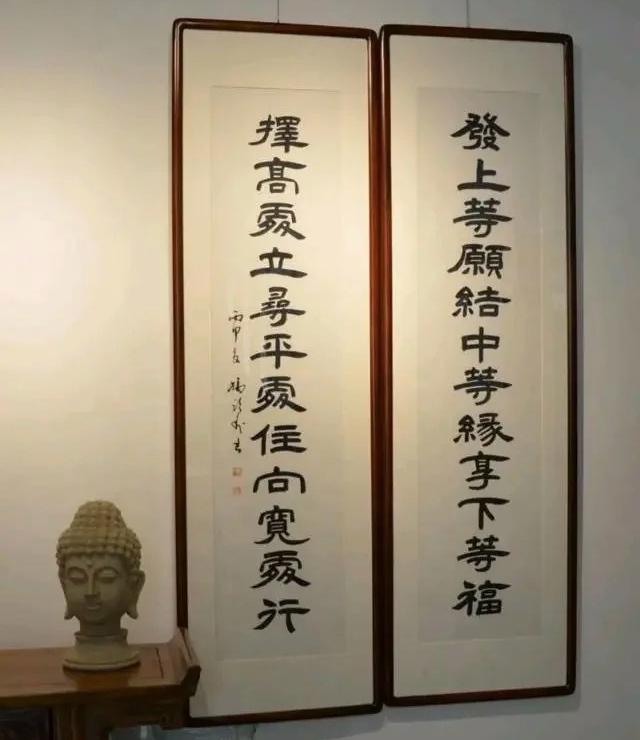 發上等願結中等緣享下等福
擇髙處立尋平處住向寬處行